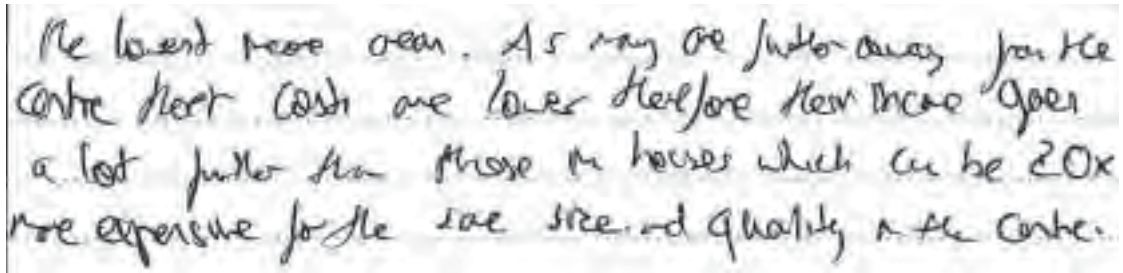 the lowest income area. As they are further away from the
centre their costs are lower therefore their income goes
a lot further than those in houses which can be 20x
more expensive for the same size and quality in the centre.